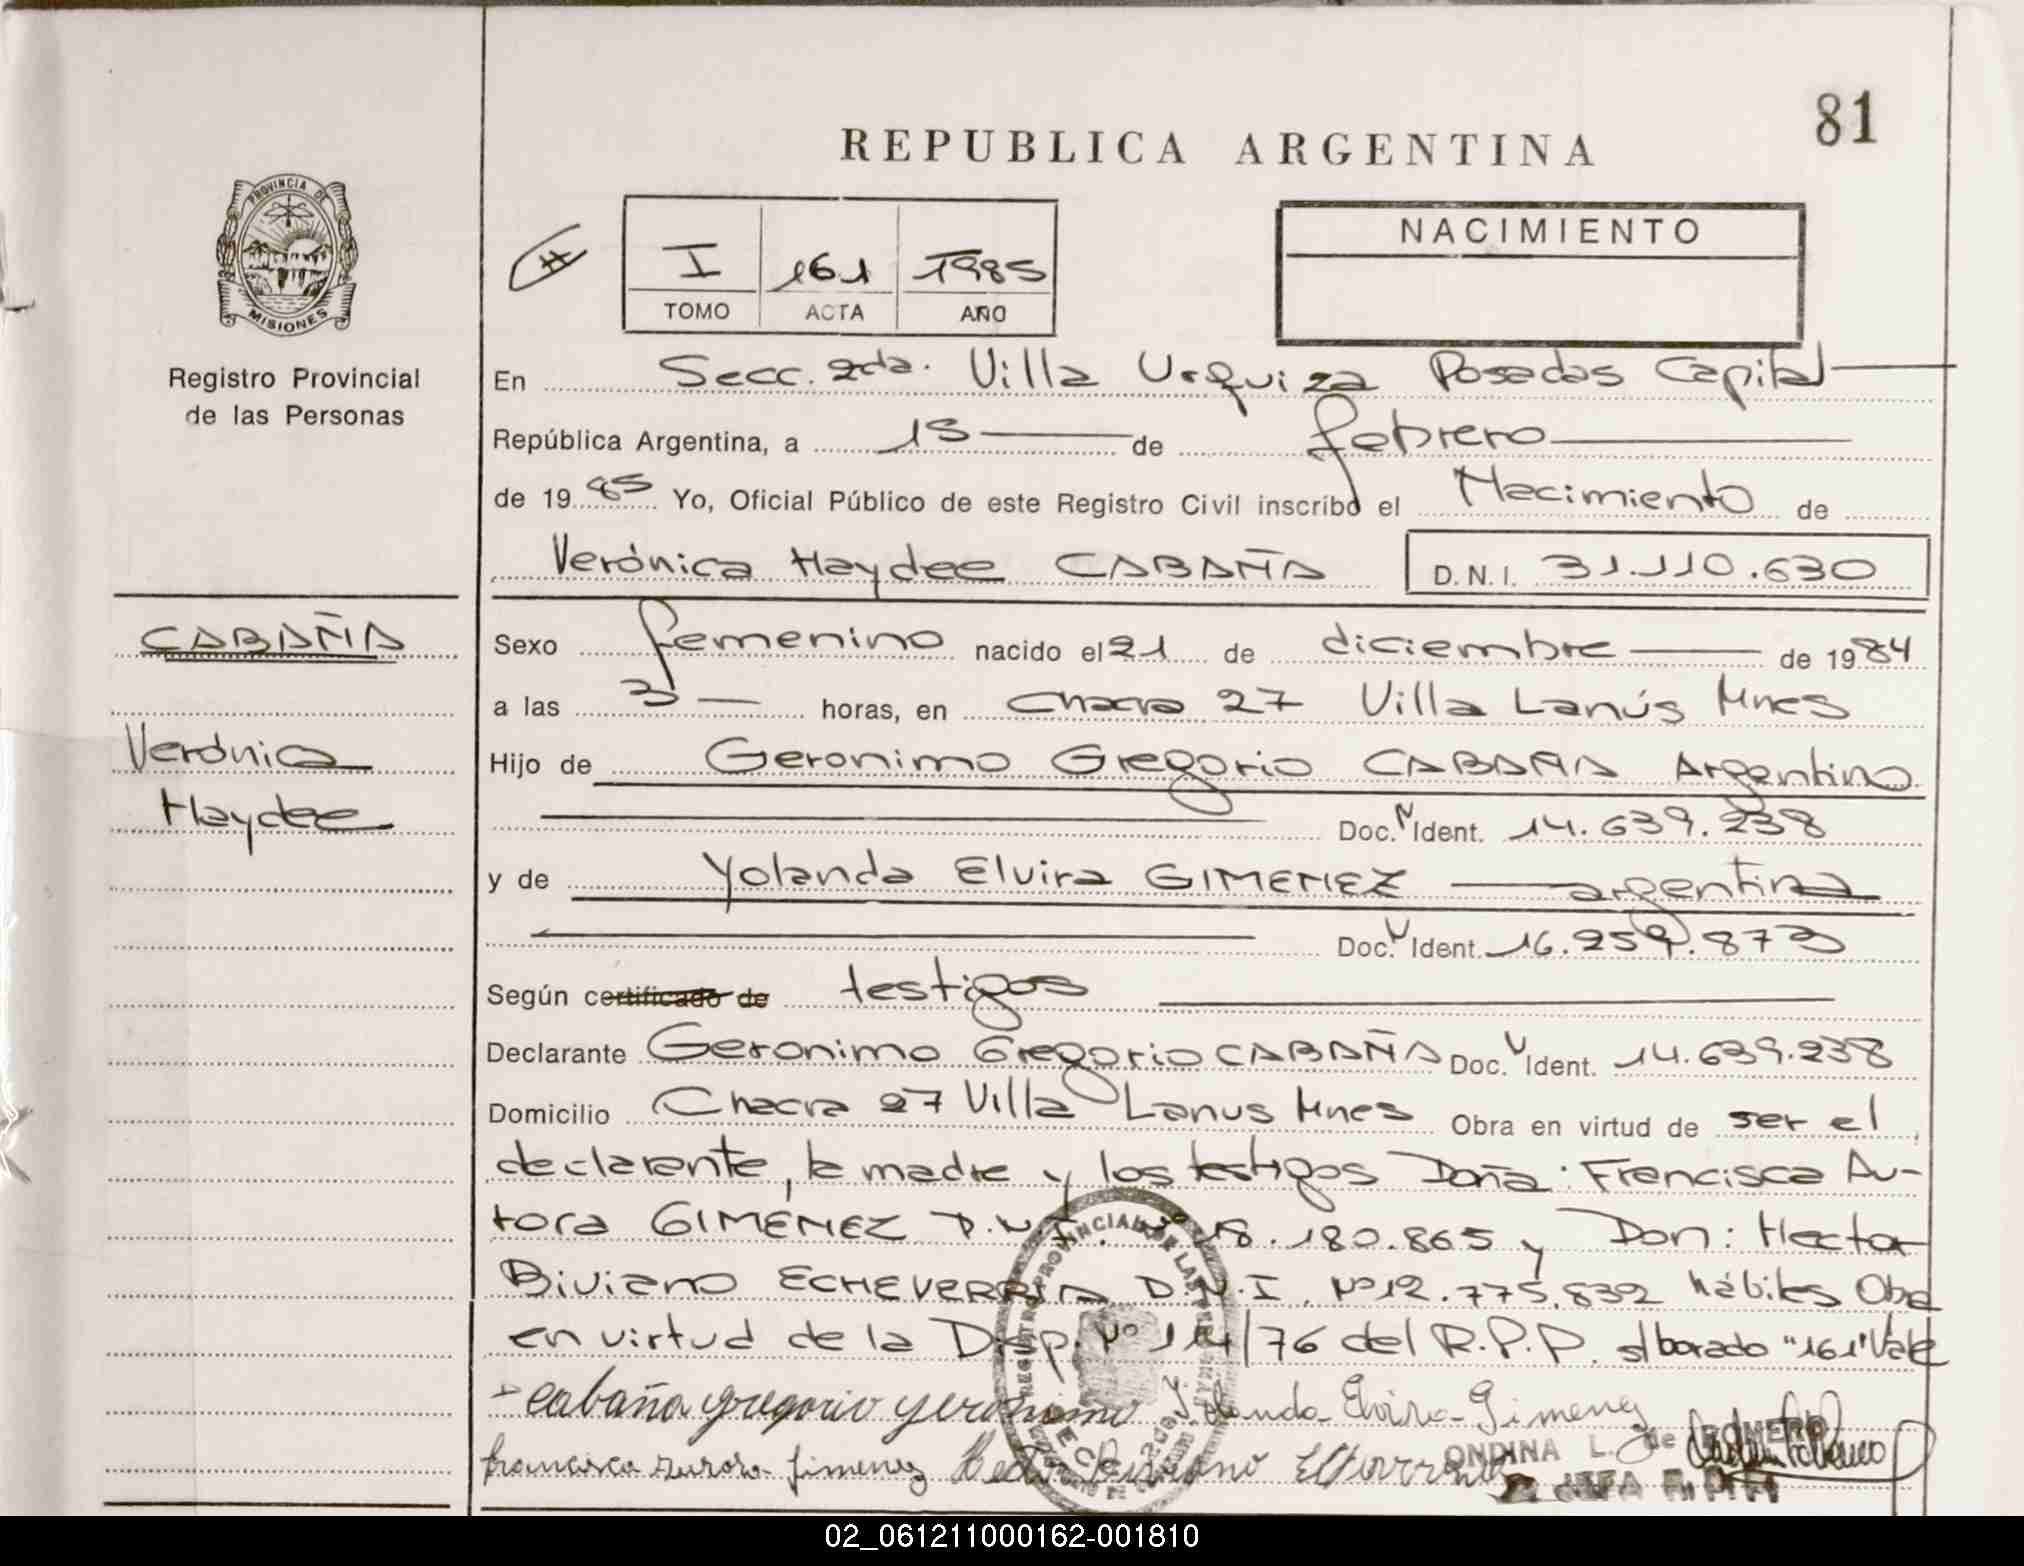 81
REPUBLICA ARGENTINA
PROVINCIA DE
MISIONES
Registro Provincial
de las Personas
I 161 1985
TOMO ACTA AÑO
NACIMIENTO
En Secc. 2da. Villa Urquiza Posadas Capital
República Argentina, a 15 de febrero
de 1985 Yo, Oficial Público de este Registro Civil inscribo el Nacimiento de
Verónica Haydee CABAÑA D.N.I. 31.110.630
CABAÑA
Verónica
Haydee
Sexo femenino nacido el 21 de diciembre de 1984
a las 3 horas, en Chacra 27 Villa Lanús Mnes
Hijo de Geronimo Gregorio CABAÑA Argentino
Doc. N Ident. 14.639.238
y de Yolanda Elvira GIMENEZ argentina
Doc. Ident. 16.259.873
Según certificado de testigos
Declarante Geronimo Gregorio CABAÑA Doc. Ident. 14.639.238
Domicilio Chacra 27 Villa Lanus Mnes Obra en virtud de ser el
declarante, la madre y los testigos Doña: Francisca Au-
rora GIMENEZ D.N.I. Nº 18.180.865 y Don: Hector
Biviano ECHEVERRIA D.N.I. Nº 12.775.832 hábiles Obra
en virtud de la Disp. Nº 114/76 del R.P.P. s/borado "161" Vale
cabaña gregorio yeronimo Yolanda Elvira Gimenez
francisca aurora jimenez
ONDINA L. de ROMERO
JEFA R.P.P.
02_061211000162-001810